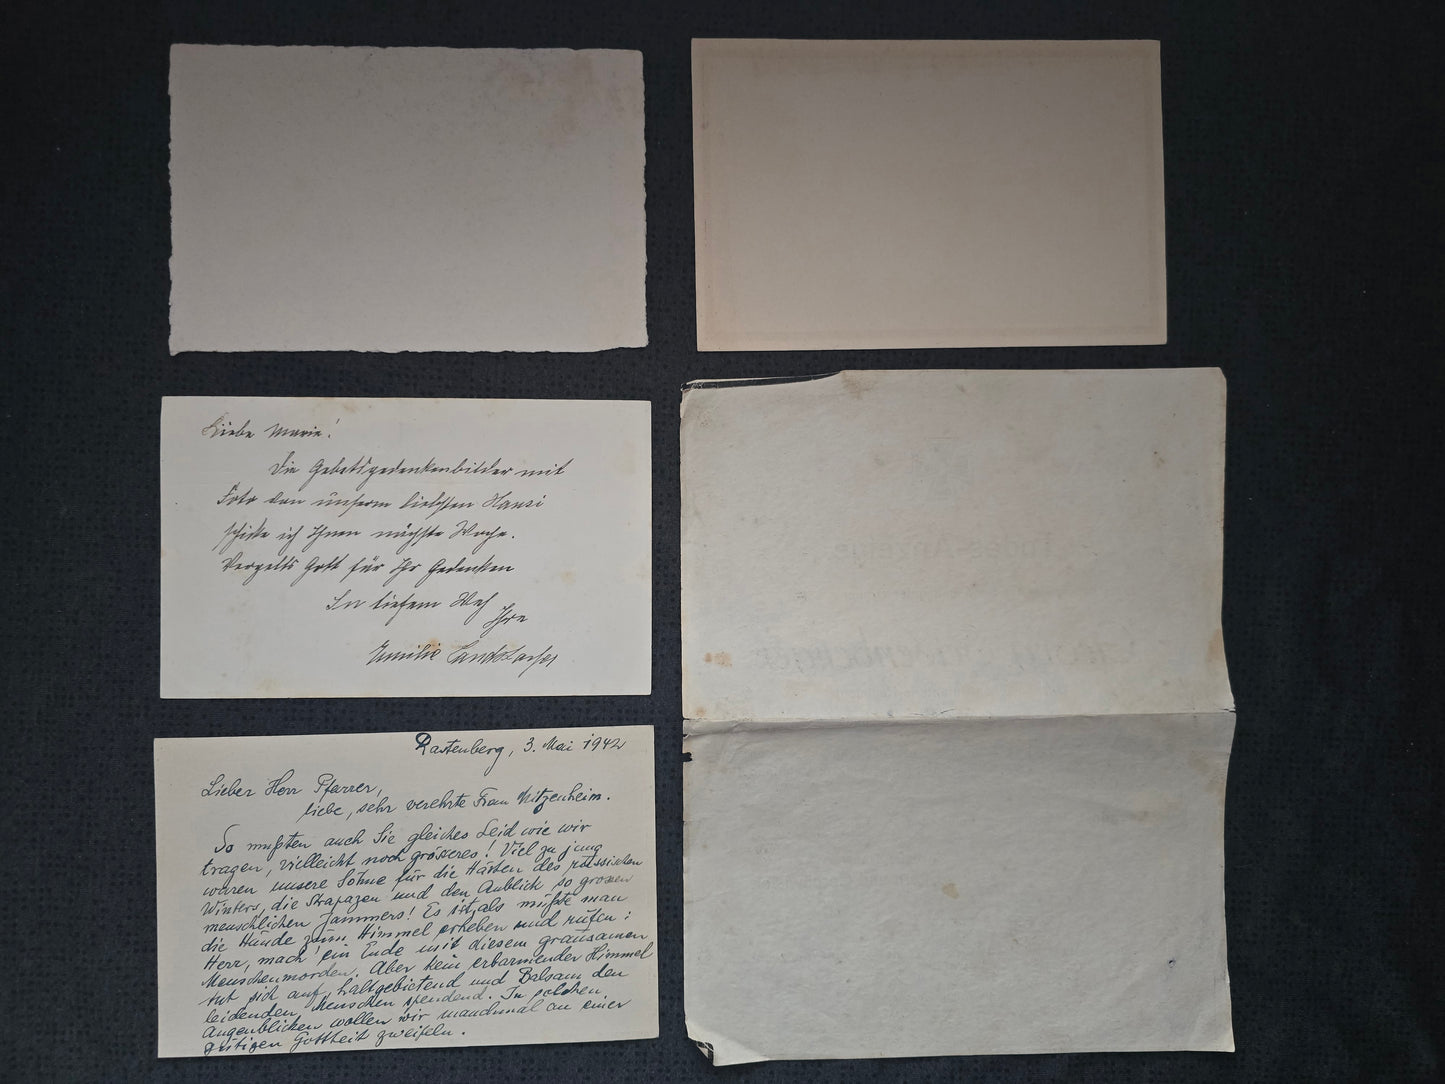 Liebe Marie!
Die Gebetsgedenkenbilder mit
Foto von unserm liebsten Hansi
schicke ich Ihnen nächste Woche.
Vergelts Gott für Ihr Gedenken
In tiefem Weh
Ihre
Emilie
Rastenberg, 3. Mai 1942
Lieber Herr Pfarrer,
liebe, sehr verehrte Frau Mitzenheim.
So mußten auch Sie gleiches Leid wie wir
tragen, vielleicht noch grösseres! Viel zu jung
waren unsere Söhne für die Härten des russischen
Winters, die Strapazen und den Anblick so grossen
menschlichen Jammers! Es ist, als müßte man
die Hände zum Himmel erheben und rufen:
Herr, mach' ein Ende mit diesem grausamen
Menschenmorden. Aber kein erbarmender Himmel
tut sich auf, haltgebietend und Balsam den
leidenden Menschen spendend. In solchen
Augenblicken wollen wir manchmal an einer
gütigen Gottheit zweifeln.